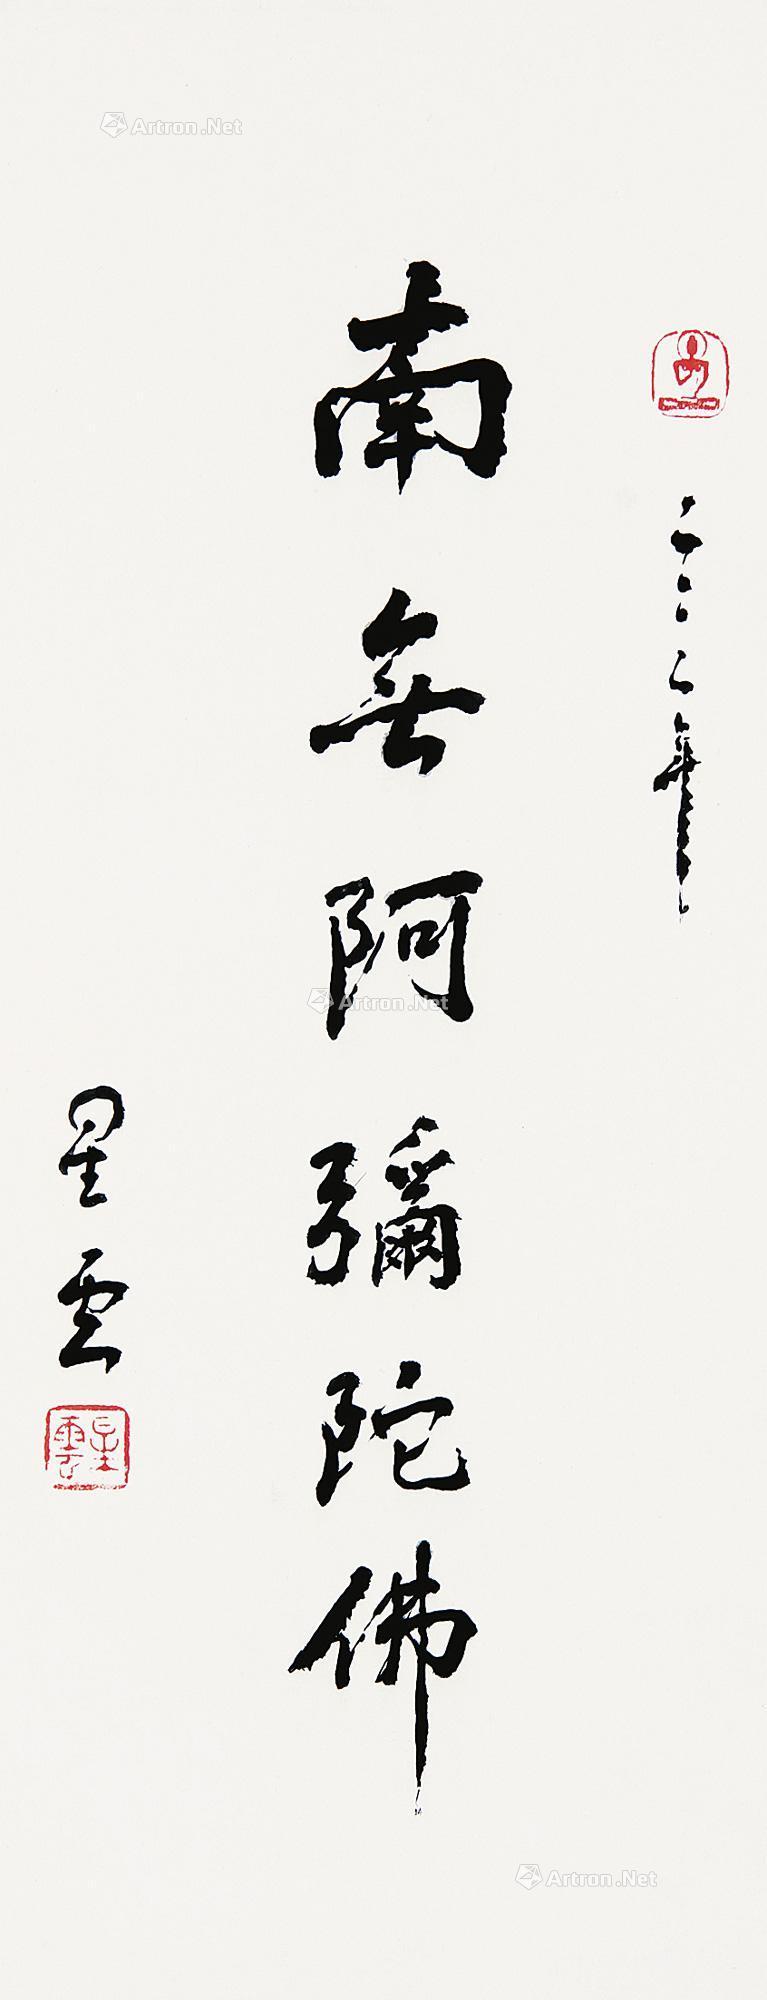 Artron.Net
二〇〇二年
南無阿彌陀佛
Artron.Net
星雲
星雲
Artron.Net